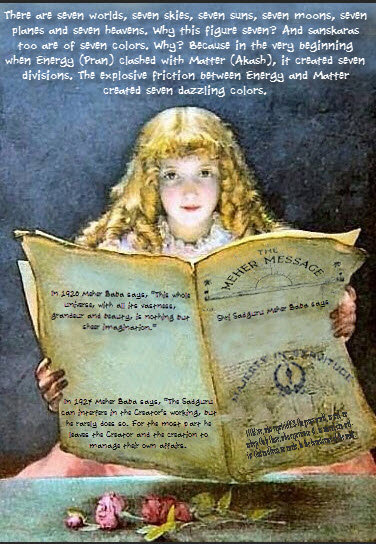 There are seven worlds, seven skies, seven suns, seven moons, seven
planes and seven heavens. Why this figure seven? And sanskaras
too are of seven colors. Why? Because in the very beginning
when Energy (Pran) clashed with Matter (Akash), it created seven
divisions. The explosive friction between Energy and Matter
created seven dazzling colors.
In 1926 Meher Baba says, "This whole
universe, with all its vastness,
grandeur and beauty, is nothing but
sheer imagination."
In 1927 Meher Baba says, "The Sadguru
can interfere in the Creator's working, but
he rarely does so. For the most part he
leaves the Creator and the creation to
manage their own affairs.
THE
MEHER MESSAGE
Shri Sadguru Meher Baba says